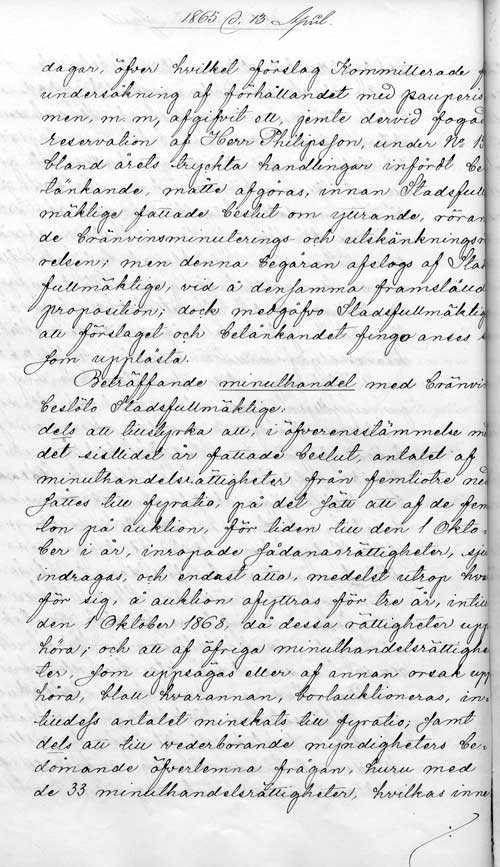 1865 d. 13 April.
dagar, öfver hvilket förslag Kommitterade f
undersökning af förhållandet med pauperis
men, m. m, afgifvit ett, jemte dervid fogad
reservation af Herr Philipsson, under No 15
bland årets tryckta handlingar infördt be
tänkande, måtte afgöras, innan Stadsfull
mäktige fattade beslut om yttrande, röran
de bränvinsminuterings- och utskänkningsrö
relsen; men denna begäran afslogs af Stads
fullmäktige, vid å densamma framställd
proposition; dock medgåfvo Stadsfullmäktige
att förslaget och betänkandet fingo anses s
som upplästa.
Beträffande minuthandel med bränvin
beslöto Stadsfullmäktige:
dels att tillstyrka att, i öfverensstämmelse m
det sistlidet år fattade beslut, antalet af
minuthandelsrättigheter från femtiotre ned
sattes till fyratio, på det sätt att af de fem
ton på auktion, för tiden till den 1 Okto-
ber i år, inropade sådana rättigheter, sju
indragas, och endast åtta, medelst utrop hva
för sig, å auktion afyttras för tre år, intill
den 1 Oktober 1868, då dessa rättigheter upp
höra; och att af öfriga minuthandelsrättighe
ter, som uppsägas eller af annan orsak upp
höra, blott hvarannan, bortauktioneras, in-
tilldess antalet minskats till fyratio; samt
dels att till vederbörande myndigheters be-
dömande öfverlemna frågan, huru med
de 33 minuthandelsrättigheter, hvilkas inne